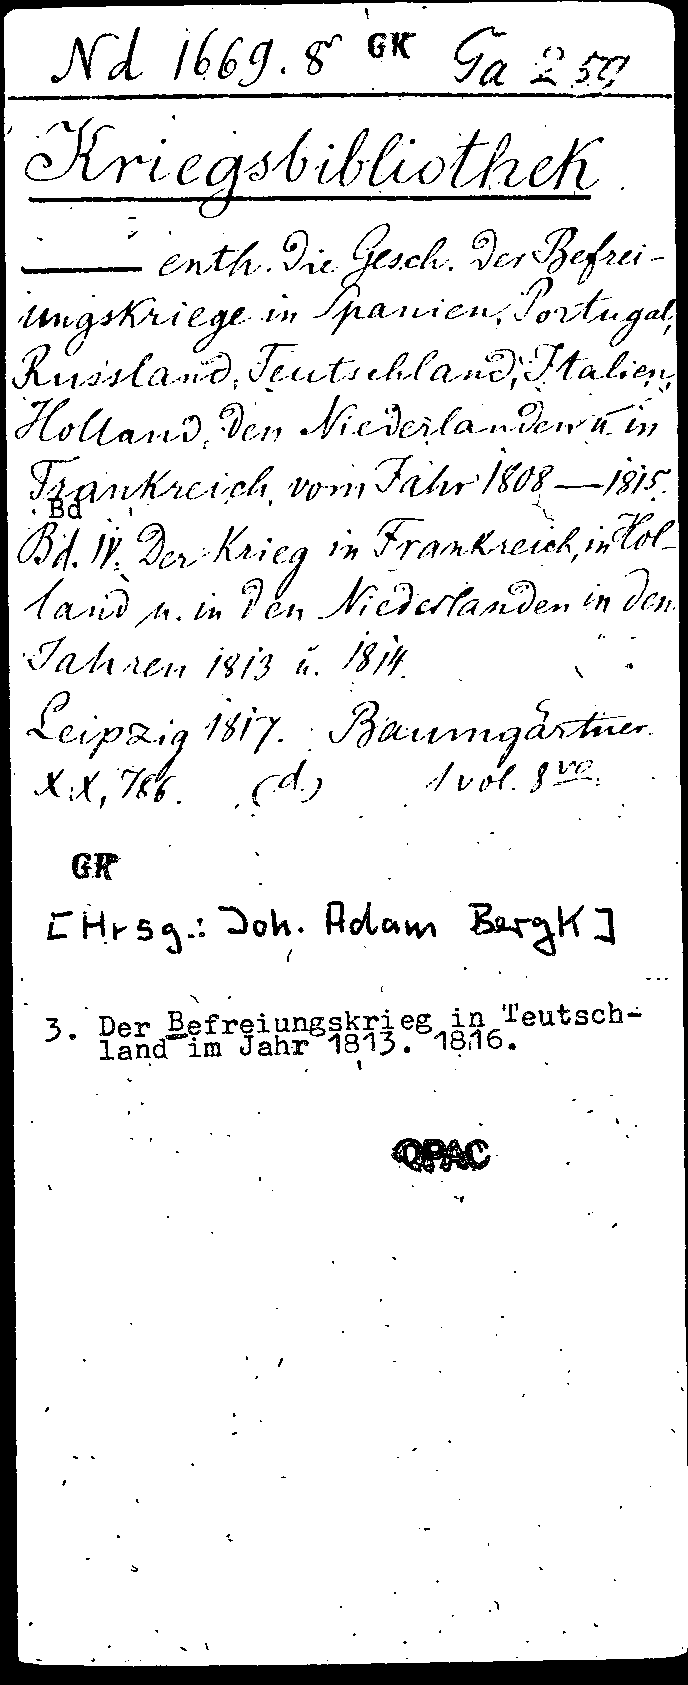 Nd 1669.8° GK Ga 250
Kriegsbibliothek
—— enth. die Gesch. der Befrei-
ungskriege in Spanien, Portugal,
Russland, Teutschland, Italien,
Holland, den Niederlanden u. in
Frankreich, vom Jahr 1808—1815.
Bd
Bd. IV. Der Krieg in Frankreich, in Hol-
land u. in den Niederlanden in den
Jahren 1813 u. 1814.
Leipzig 1817. Baumgärtner.
XX, 786. (d.) 1 vol. 8vo.
GK
[Hrsg.: Joh. Adam Bergk]
3. Der Befreiungskrieg in Teutsch-
land im Jahr 1813. 1816.
OPAC